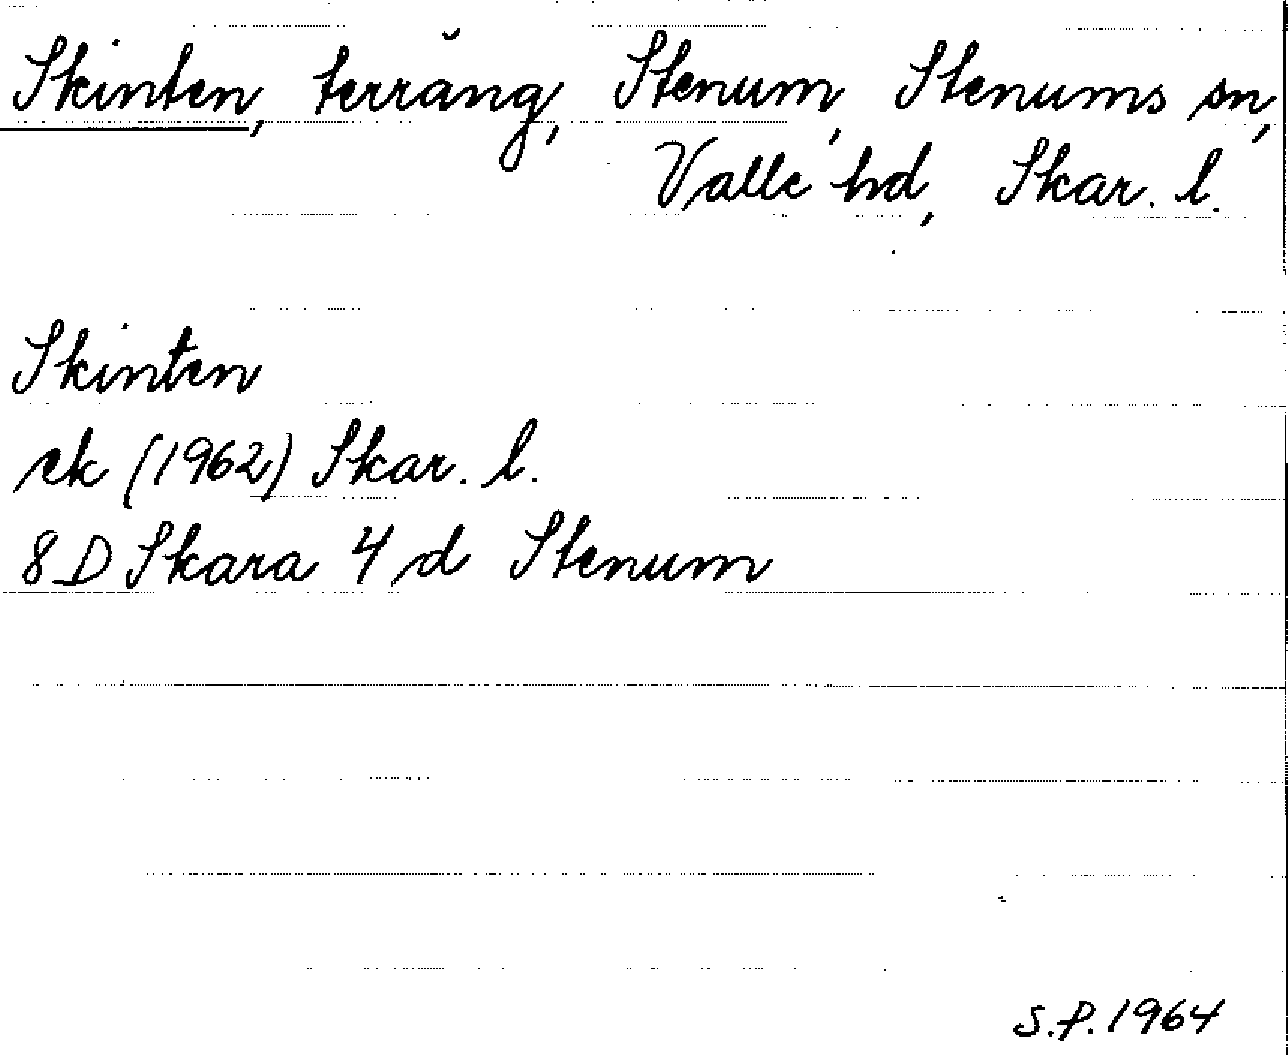 Skinten, terräng, Stenum, Stenums sn,
Valle hd, Skar. l.
Skinten
ek (1962) Skar. l.
8D Skara 4 d Stenum
S.P. 1964